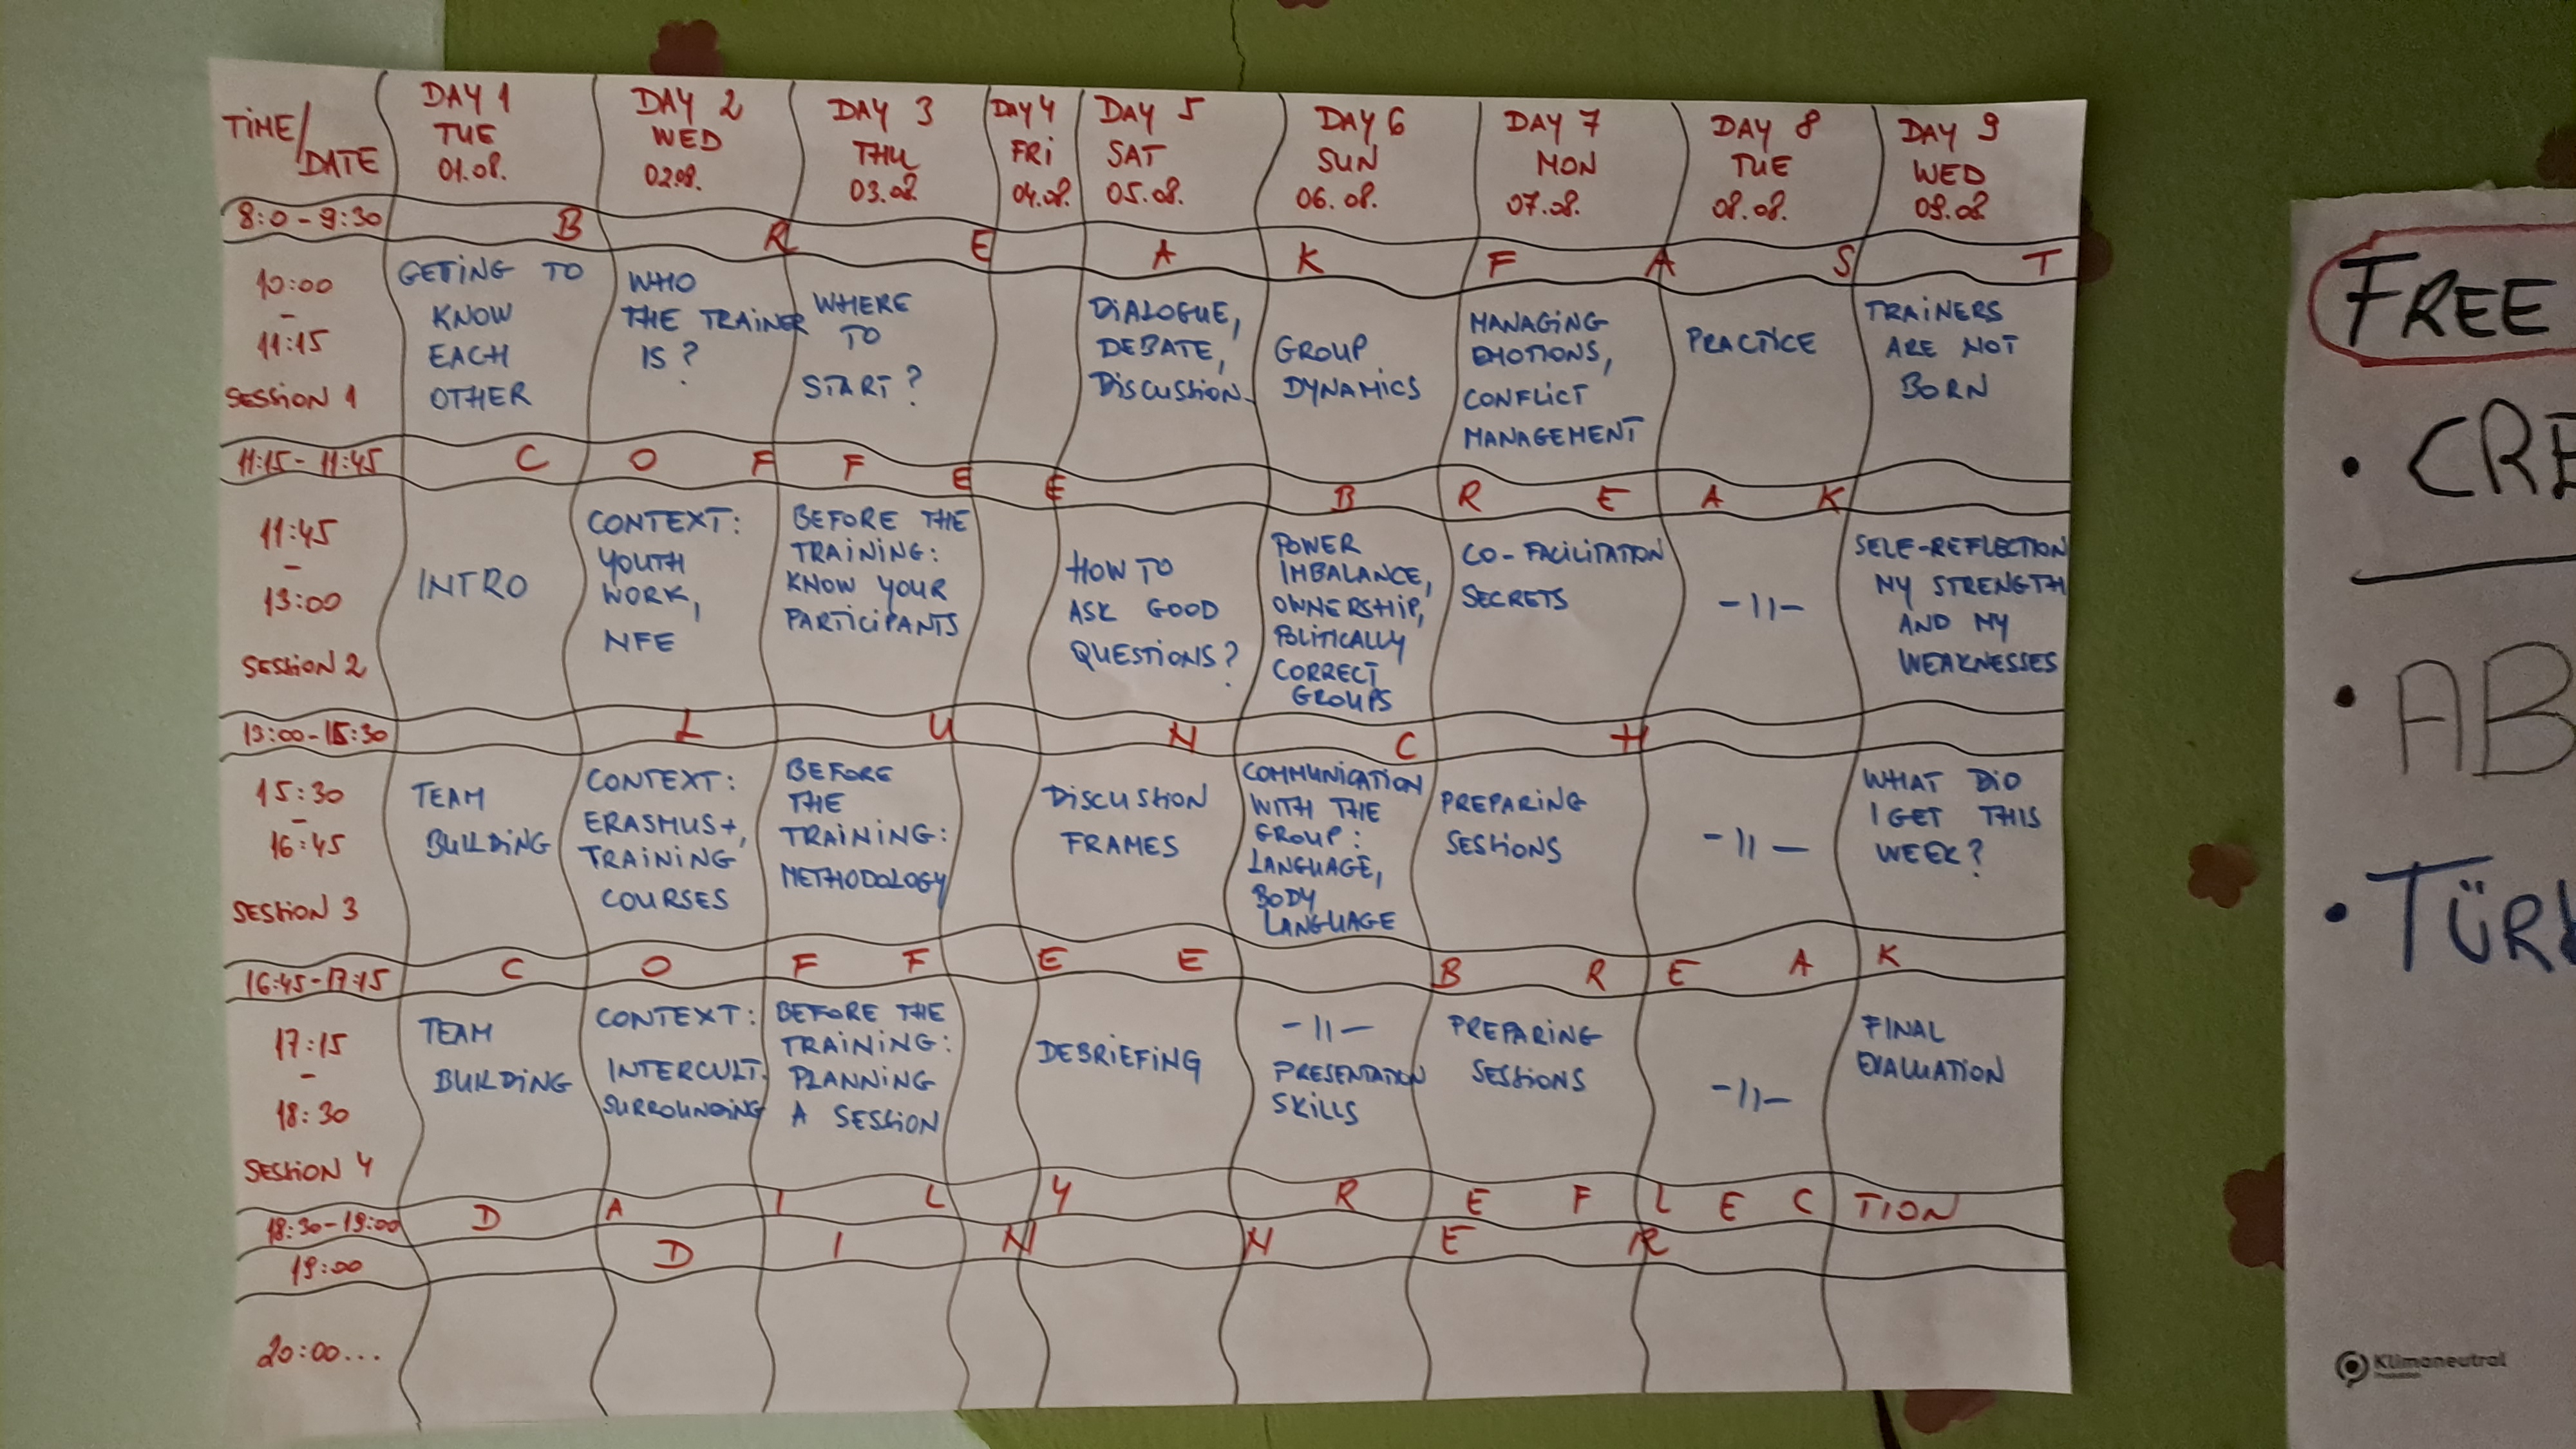 TIME/DATE
DAY 1
TUE
01.08.
DAY 2
WED
02.08.
DAY 3
THU
03.08.
DAY 4
FRI
04.08.
DAY 5
SAT
05.08.
DAY 6
SUN
06.08.
DAY 7
MON
07.08.
DAY 8
TUE
08.08.
DAY 9
WED
09.08
8:0 - 9:30
B R E A K F A S T
10:00
-
11:15
SESSION 1
GETING TO
KNOW
EACH
OTHER
WHO
THE TRAINER
IS?
WHERE
TO
START?
DIALOGUE,
DEBATE,
DISCUSSION
GROUP
DYNAMICS
MANAGING
EMOTIONS,
CONFLICT
MANAGEMENT
PRACTICE
TRAINERS
ARE NOT
BORN
11:15 - 11:45
C O F F E E B R E A K
11:45
-
13:00
SESSION 2
INTRO
CONTEXT:
YOUTH
WORK,
NFE
BEFORE THE
TRAINING:
KNOW YOUR
PARTICIPANTS
HOW TO
ASK GOOD
QUESTIONS?
POWER
IMBALANCE,
OWNERSHIP,
POLITICALLY
CORRECT
GROUPS
CO-FACILITATION
SECRETS
-11-
SELF-REFLECTION
MY STRENGTH
AND MY
WEAKNESSES
13:00 - 15:30
L U N C H
15:30
-
16:45
SESSION 3
TEAM
BUILDING
CONTEXT:
ERASMUS+,
TRAINING
COURSES
BEFORE
THE
TRAINING:
METHODOLOGY
DISCUSSION
FRAMES
COMMUNICATION
WITH THE
GROUP:
LANGUAGE,
BODY
LANGUAGE
PREPARING
SESSIONS
-11-
WHAT DID
I GET THIS
WEEK?
16:45 - 17:15
C O F F E E B R E A K
17:15
-
18:30
SESSION 4
TEAM
BUILDING
CONTEXT:
INTERCULT.
SURROUNDING
BEFORE THE
TRAINING:
PLANNING
A SESSION
DEBRIEFING
-11-
PRESENTATION
SKILLS
PREPARING
SESSIONS
-11-
FINAL
EVALUATION
18:30 - 19:00
D A I L Y R E F L E C TION
19:00
D I N N E R
20:00...
FREE
• CRE
• AB
• TÜR
Klimaneutral